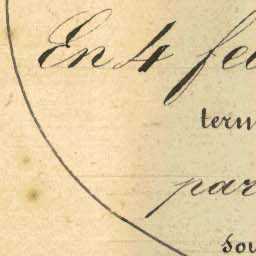 En 4 fe
tern
par
sou